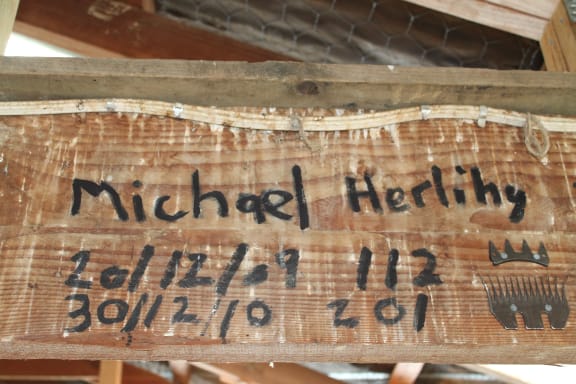 Michael Herlihy
20/12/09 112
30/12/10 201